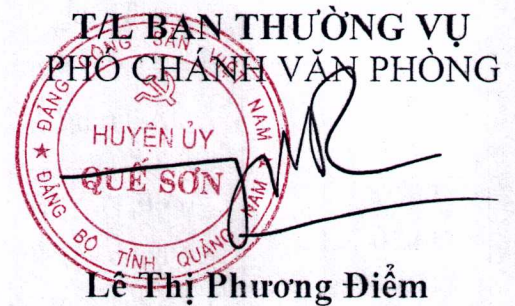 T/L BAN THƯỜNG VỤ
PHÓ CHÁNH VĂN PHÒNG
ĐẢNG CỘNG SẢN VIỆT NAM
HUYỆN ỦY
QUẾ SƠN
★ ĐẢNG BỘ TỈNH QUẢNG NAM ★
Lê Thị Phương Điểm